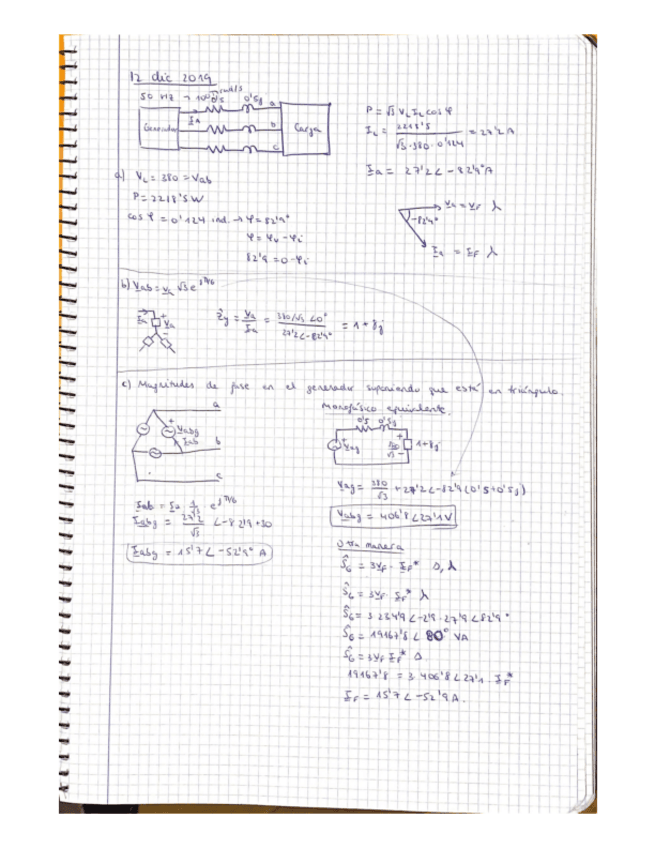 12 dic 2019
50 Hz → 100π rad/s
0'5 0'5j a
Generador Ia b Carga
c
P = √3 VL IL cos φ
IL = 2218'5 / √3·380·0'124 = 27'2 A
Ia = 27'2∠-82'9° A
a) VL = 380 = Vab
P = 2218'5 W
cos φ = 0'124 ind → φ = 82'9°
φ = φv - φi
82'9 = 0 - φi
Va = VF λ
-82'9°
Ia = IF λ
b) Vab = Va √3 e^jπ/6
Ia + Va -
Zy = Va / Ia = 380/√3 ∠0° / 27'2∠-82'9° = 1 + 8j
c) Magnitudes de fase en el generador suponiendo que está en triángulo.
a
+ Vabg
Iab b
- c
monofásico equivalente.
0'5 0'5j
Vag + 380/√3 - 1+8j
Vag = 380/√3 + 27'2∠-82'9 (0'5+0'5j)
Vabg = 406'8∠27'1 V
Iab = Ia 1/√3 e^jπ/6
Iabg = 27'2/√3 ∠-82'9+30
Iabg = 15'7∠-52'9° A
Otra manera
ŜG = 3VF · IF* Δ, λ
ŜG = 3VF · IF* λ
ŜG = 3·234'9∠-2'9·27'2∠82'9°
ŜG = 19167'8∠80° VA
ŜG = 3VF IF* Δ.
19167'8 = 3·406'8∠27'1 · IF*
IF = 15'7∠-52'9 A.